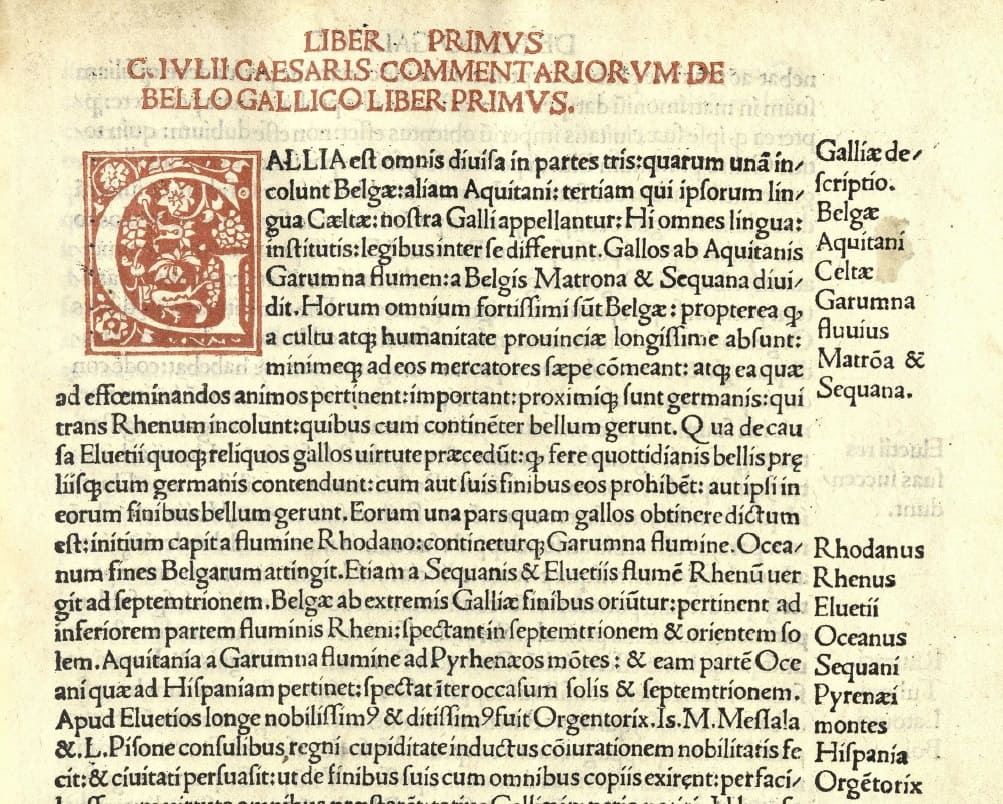 LIBER PRIMVS
C. IVLII CAESARIS COMMENTARIORVM DE
BELLO GALLICO LIBER PRIMVS.
GALLIA eſt omnis diuiſa in partes tris:quarum unā in/
colunt Belgæ:aliam Aquitani: tertiam qui ipſorum lin/
gua Cæltæ: noſtra Galli appellantur: Hi omnes lingua:
inſtitutis: legibus inter ſe differunt. Gallos ab Aquitanis
Garumna flumen: a Belgis Matrona & Sequana diui/
dit. Horum omnium fortiſſimi ſūt Belgæ: propterea ꝙ
a cultu atqꝫ humanitate prouinciæ longiſſime abſunt:
minimeqꝫ ad eos mercatores ſæpe cōmeant: atqꝫ ea quæ
ad effœminandos animos pertinent: important: proximiqꝫ ſunt germanis: qui
trans Rhenum incolunt: quibus cum continēter bellum gerunt. Qua de cau
ſa Eluetii quoqꝫ reliquos gallos uirtute præcedūt: ꝙ fere quottidianis bellis prę
liiſqꝫ cum germanis contendunt: cum aut ſuis finibus eos prohibēt: aut ipſi in
eorum finibus bellum gerunt. Eorum una pars quam gallos obtinere dictum
eſt: initium capit a flumine Rhodano: contineturqꝫ Garumna flumine. Ocea/
num fines Belgarum attingit. Etiam a Sequanis & Eluetiis flumē Rhenū uer
git ad ſeptemtrionem. Belgæ ab extremis Galliæ finibus oriūtur: pertinent ad
inferiorem partem fluminis Rheni: ſpectant in ſeptemtrionem & orientem ſo
lem. Aquitania a Garumna flumine ad Pyrhenæos mōtes : & eam partē Oce
ani quæ ad Hiſpaniam pertinet: ſpectat īter occaſum ſolis & ſeptemtrionem.
Apud Eluetios longe nobiliſſimꝰ & ditiſſimꝰ fuit Orgentorix. Is. M. Meſſala
&. L. Piſone conſulibus regni cupiditate inductus cōiurationem nobilitatis fe
cit: & ciuitati perſuaſit: ut de finibus ſuis cum omnibus copiis exirent: perfaci/
Galliæ de/
ſcriptio.
Belgæ
Aquitani
Celtæ
Garumna
fluuius
Matrōa &
Sequana.
Rhodanus
Rhenus
Eluetii
Oceanus
Sequani
Pyrenæi
montes
Hiſpania
Orgētorix